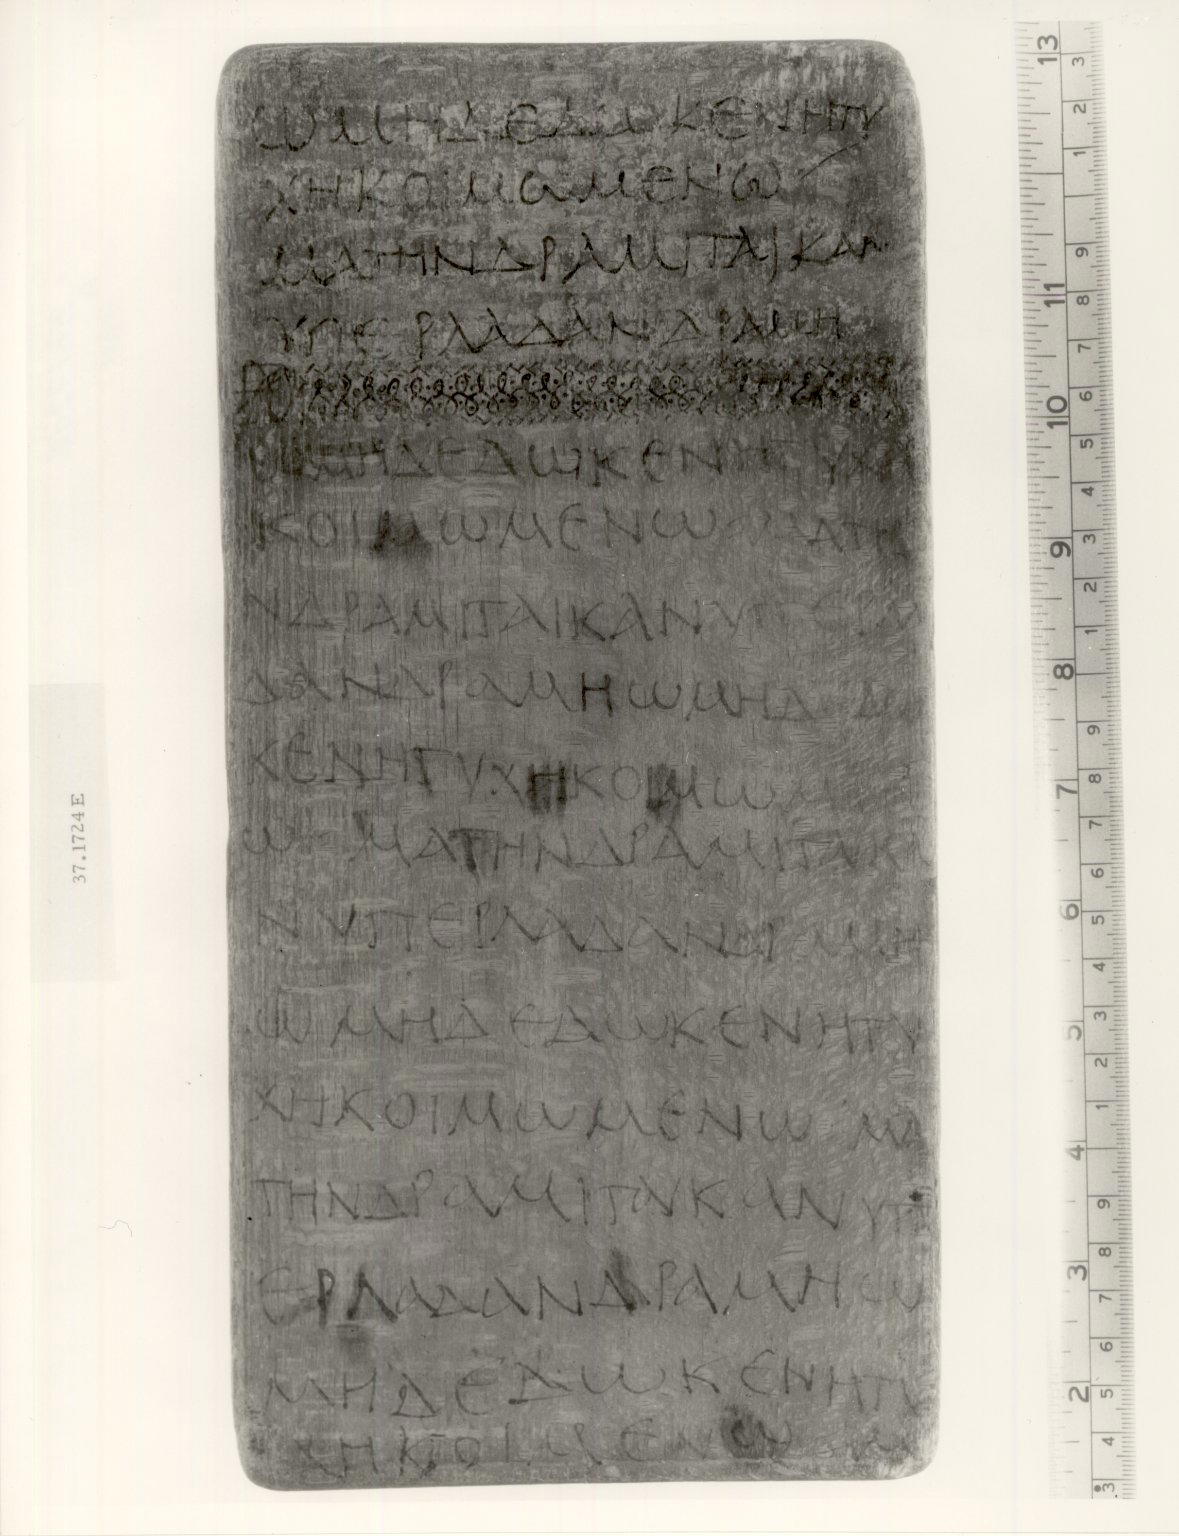 ΩΜΗΔΕΔΩΚΕΝΗΤΥ
ΧΗΚΟΙΜΩΜΕΝΩ
ΜΑΤΗΝΔΡΑΜΙΤΑΙΚΑΝ
ΥΠΕΡΛΑΔΑΝΔΡΑΜΗ
ΩΜΗΔΕΔΩΚΕΝΗΤΥΧΗ
ΚΟΙΜΩΜΕΝΩ ΜΑΤΗ
ΝΔΡΑΜΙΤΑΙΚΑΝΥΠΕΡΛΑ
ΔΑΝΔΡΑΜΗΩΜΗΔΕΔΩ
ΚΕΝΗΤΥΧΗΚΟΙΜΩΜΕΝ
Ω ΜΑΤΗΝΔΡΑΜΙΤΑΙΚΑ
ΝΥΠΕΡΛΑΔΑΝΔΡΑΜΗ
ΩΜΗΔΕΔΩΚΕΝΗΤΥ
ΧΗΚΟΙΜΩΜΕΝΩ ΜΑ
ΤΗΝΔΡΑΜΙΤΑΙΚΑΝΥΠ
ΕΡΛΑΔΑΝΔΡΑΜΗΩ
ΜΗΔΕΔΩΚΕΝΗΤΥ
37.1724E
13 11 10 9 8 7 6 5 4 3 2
3 2 1 9 8 7 6 5 4 3 2 1 9 8 7 6 5 4 3 2 1 9 8 7 6 5 4 3